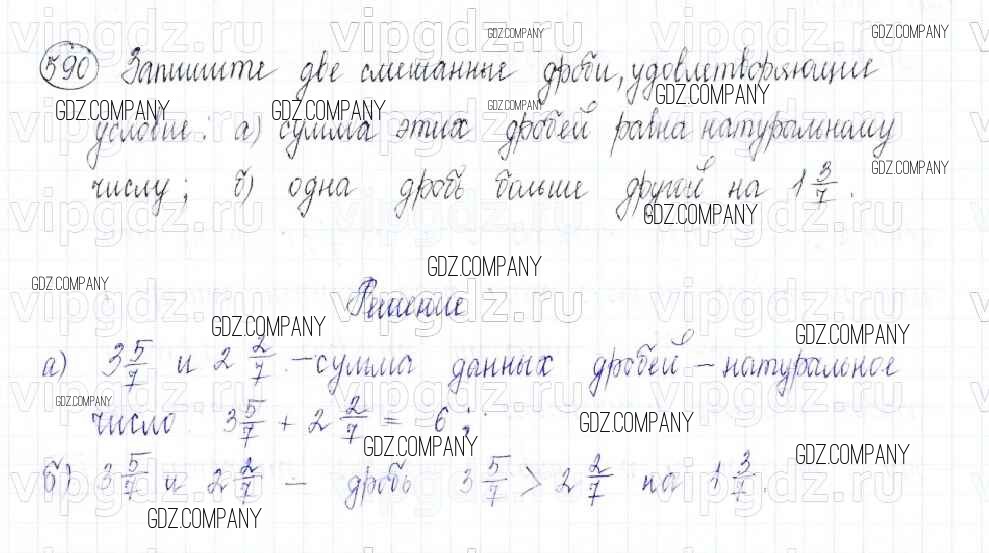 590 Запишите две смешанные дроби, удовлетворяющие
условие: а) сумма этих дробей равна натуральному
числу; б) одна дробь больше другой на 1 3/7.
Решение
а) 3 5/7 и 2 2/7 - сумма данных дробей - натуральное
число 3 5/7 + 2 2/7 = 6;
б) 3 5/7 и 2 2/7 - дробь 3 5/7 > 2 2/7 на 1 3/7.